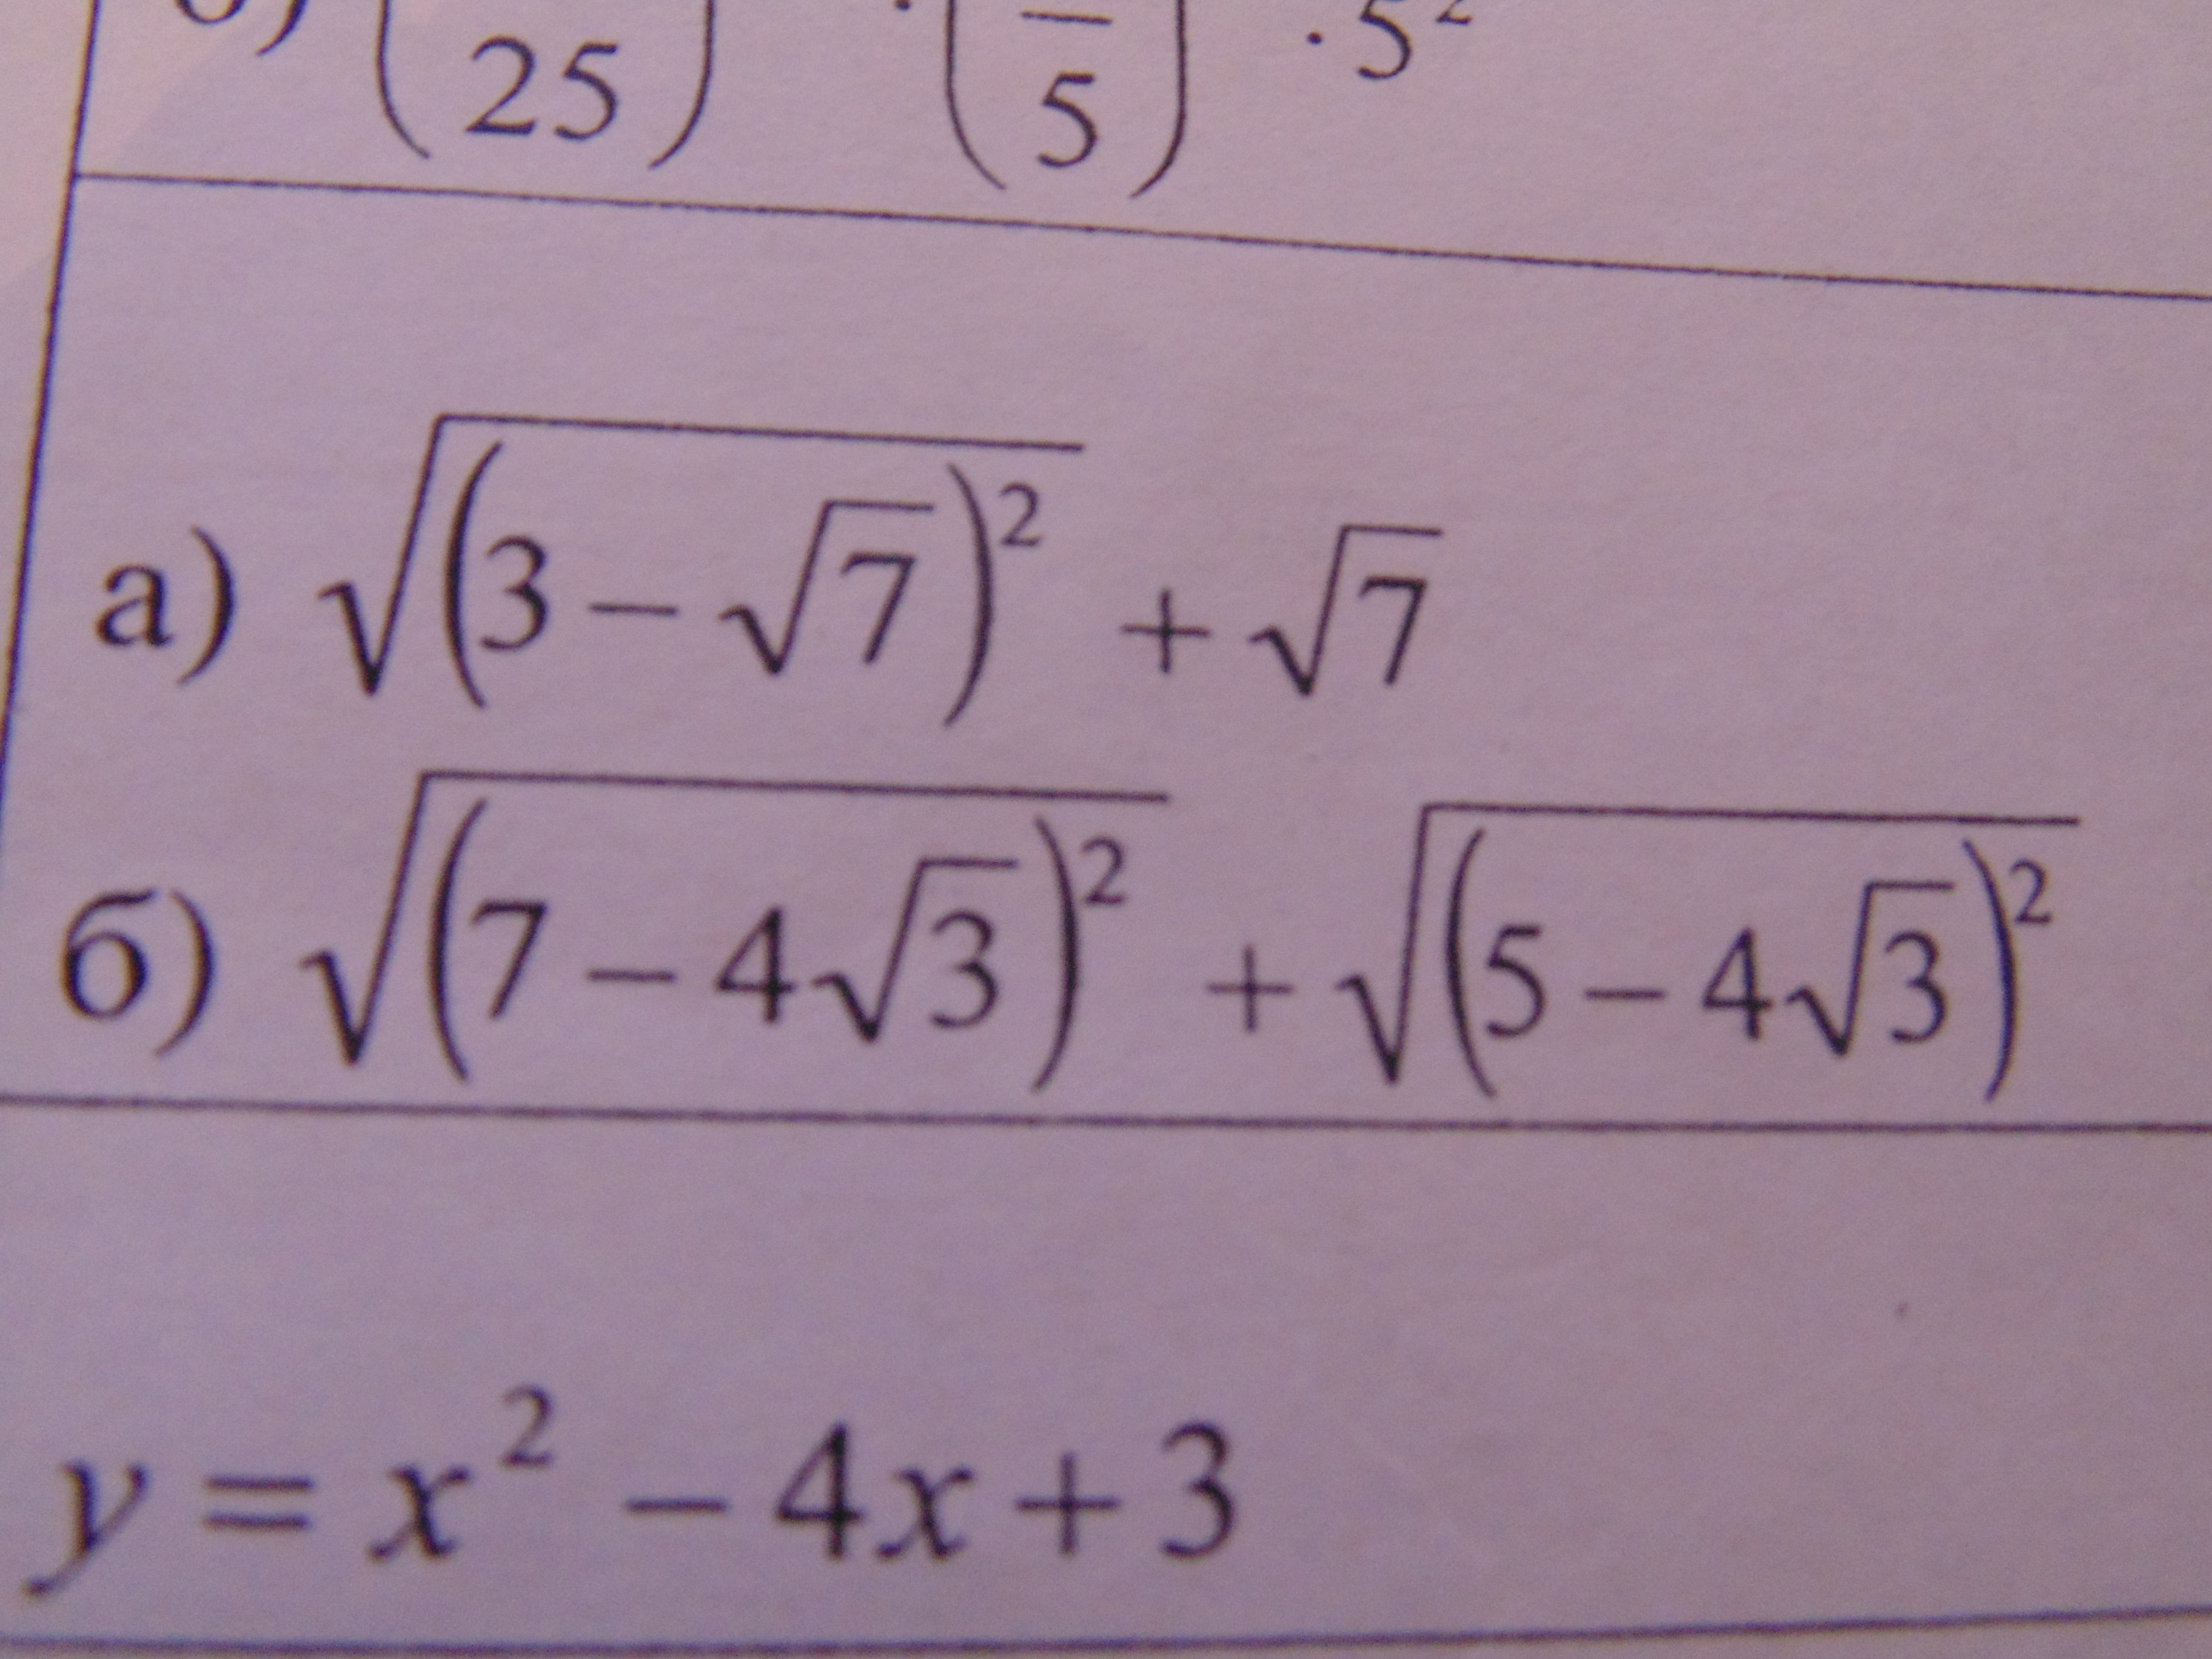 25 5 · 5²
а) √(3 − √7)² + √7
б) √(7 − 4√3)² + √(5 − 4√3)²
y = x² − 4x + 3